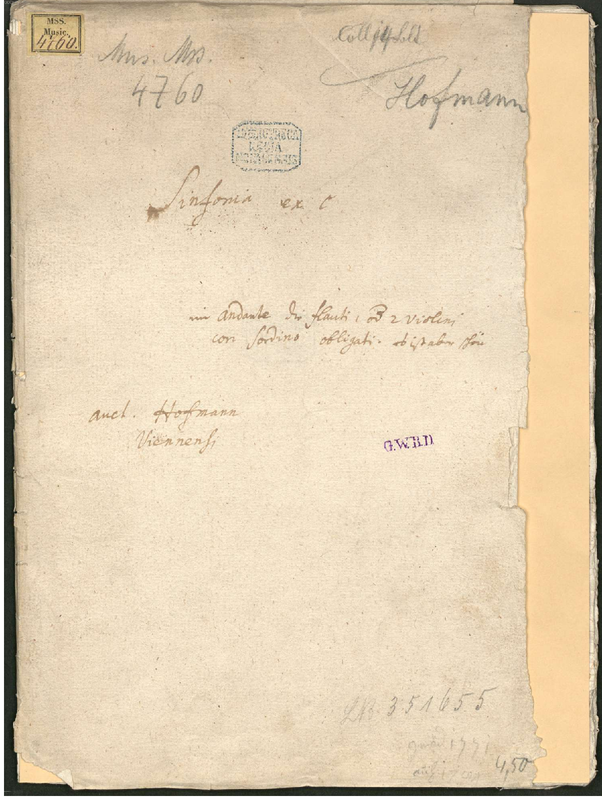 MSS.
Music.
4760.
Mus. Mss.
4760
Hofmann
BIBLIOTHECA
REGIA
MONACENSIS
Sinfonia ex C
im Andante die flauti: od 2 Violini
con Sordino obligati. es ist aber schön
auct. Hofmann
Viennensi
G.W.B.D.
351655
4,50